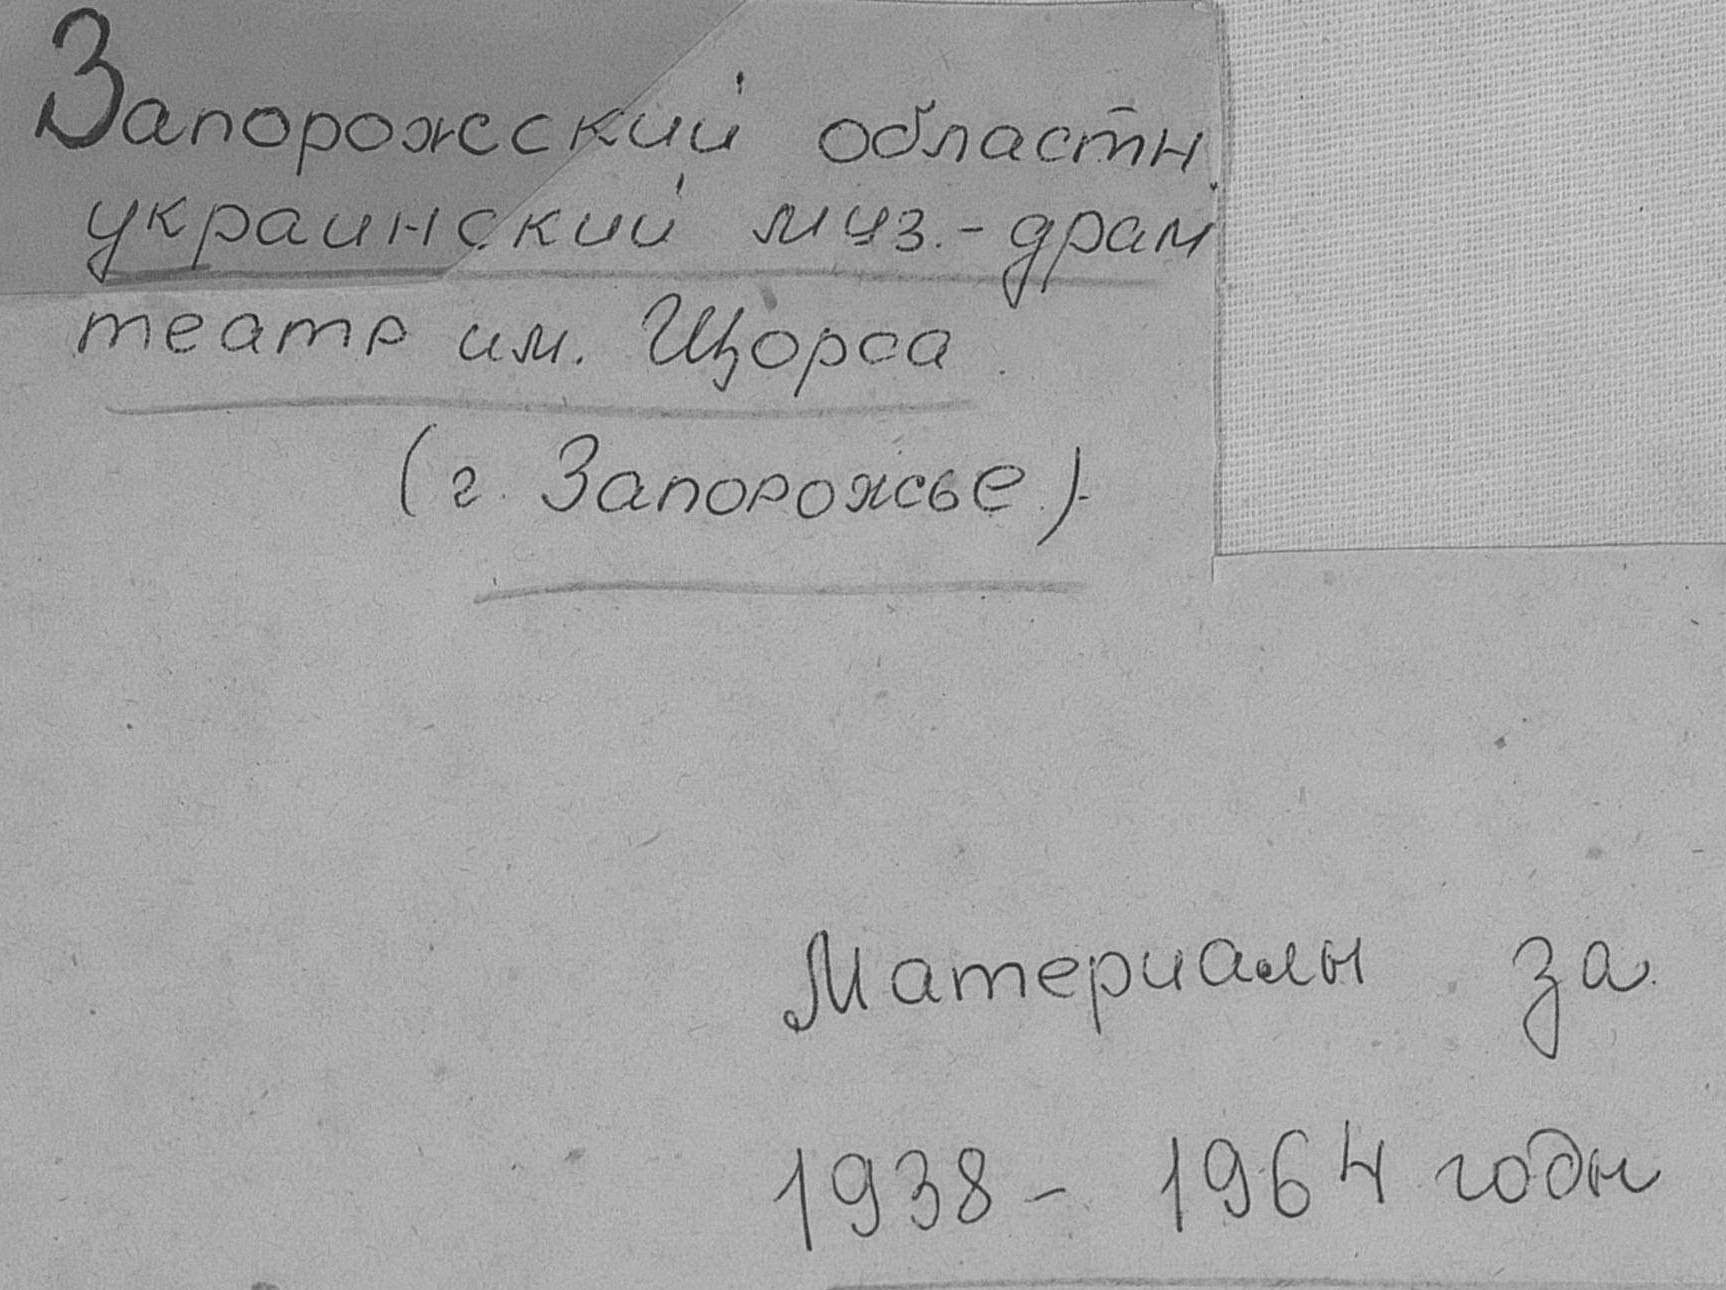 Запорожский областн.
украинский муз.-драм
театр им. Щорса.
(г. Запорожье).
Материалы за
1938 - 1964 годы